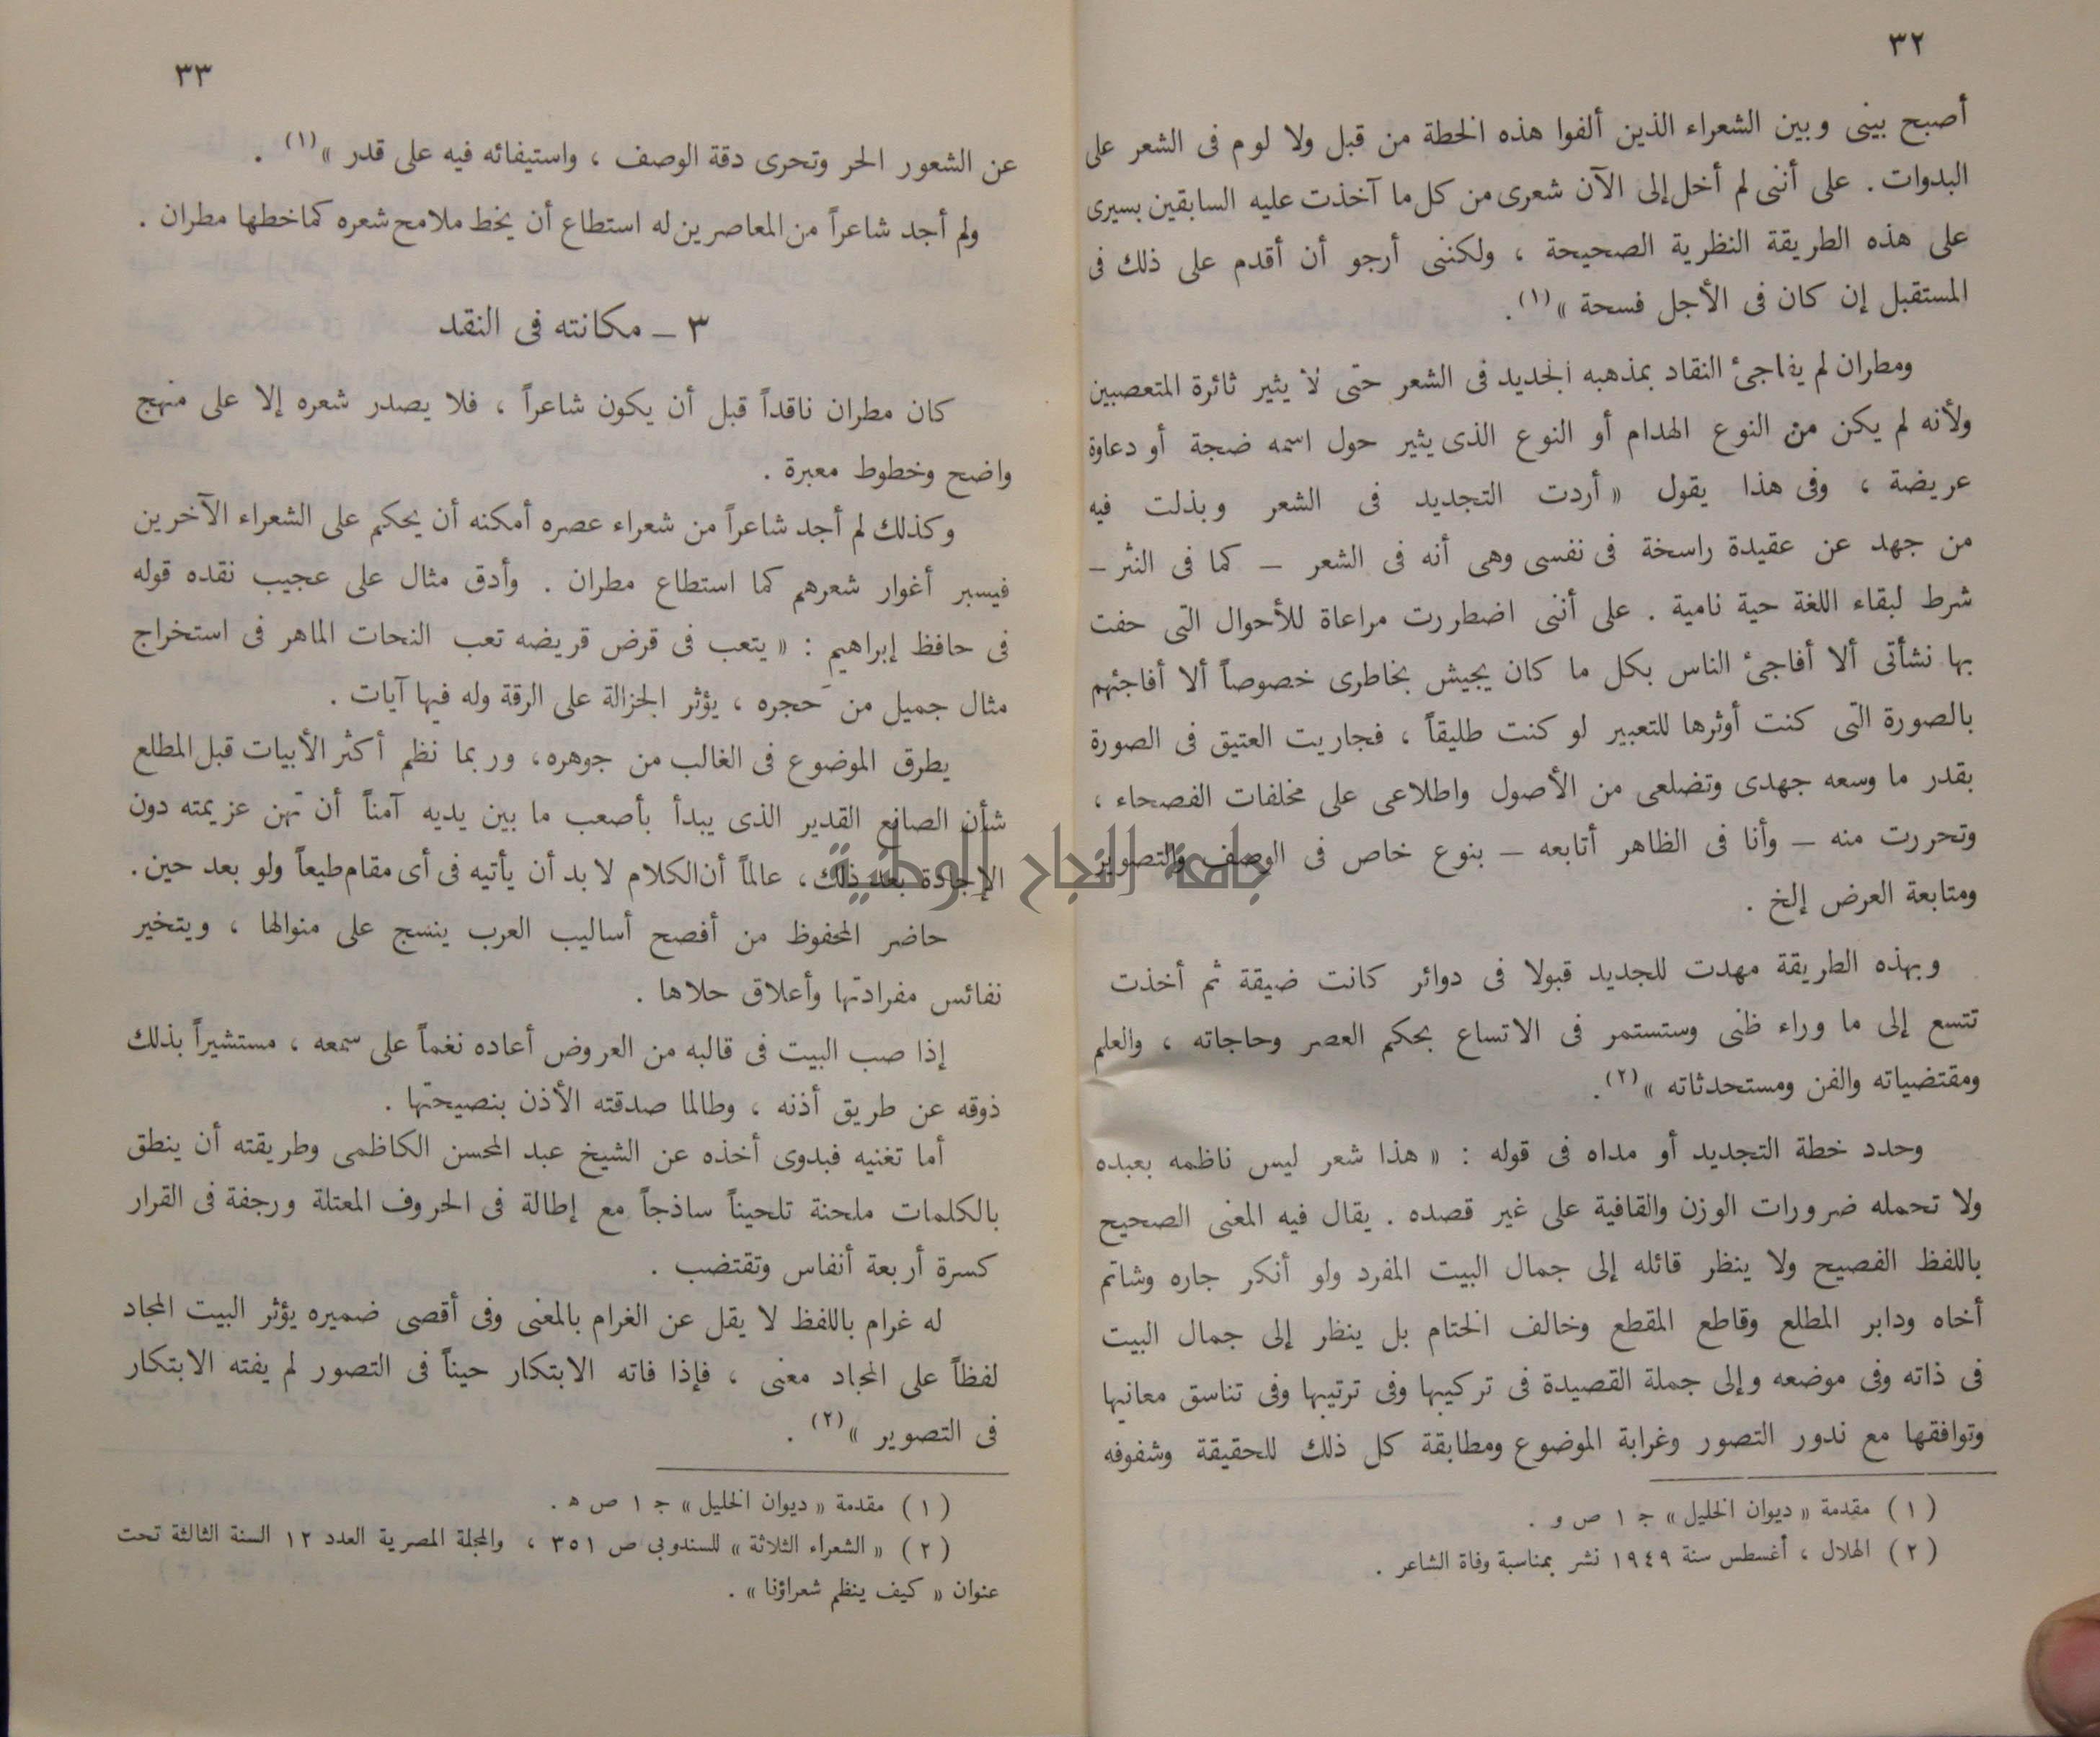 ٣٢
أصبح بينى وبين الشعراء الذين ألفوا هذه الخطة من قبل ولا لوم فى الشعر على
البدوات . على أننى لم أخل إلى الآن شعرى من كل ما آخذت عليه السابقين بسيرى
على هذه الطريقة النظرية الصحيحة ، ولكننى أرجو أن أقدم على ذلك فى
المستقبل إن كان فى الأجل فسحة » (١).
ومطران لم يفاجئ النقاد بمذهبه الجديد فى الشعر حتى لا يثير ثائرة المتعصبين
ولأنه لم يكن من النوع الهدام أو النوع الذى يثير حول اسمه ضجة أو دعاوة
عريضة ، وفى هذا يقول « أردت التجديد فى الشعر وبذلت فيه
من جهد عن عقيدة راسخة فى نفسى وهى أنه فى الشعر – كما فى النثر –
شرط لبقاء اللغة حية نامية . على أننى اضطررت مراعاة للأحوال التى حفت
بها نشأتى ألا أفاجئ الناس بكل ما كان يجيش بخاطرى خصوصاً ألا أفاجئهم
بالصورة التى كنت أوثرها للتعبير لو كنت طليقاً ، فجاريت العتيق فى الصورة
بقدر ما وسعه جهدى وتضلعى من الأصول واطلاعى على مخلفات الفصحاء ،
وتحررت منه – وأنا فى الظاهر أتابعه – بنوع خاص فى الوصف والتصوير
ومتابعة العرض إلخ .
وبهذه الطريقة مهدت للجديد قبولا فى دوائر كانت ضيقة ثم أخذت
تتسع إلى ما وراء ظنى وستستمر فى الاتساع بحكم العصر وحاجاته ، والعلم
ومقتضياته والفن ومستحدثاته » (٢).
وحدد خطة التجديد أو مداه فى قوله : « هذا شعر ليس ناظمه بعبده
ولا تحمله ضرورات الوزن والقافية على غير قصده . يقال فيه المعنى الصحيح
باللفظ الفصيح ولا ينظر قائله إلى جمال البيت المفرد ولو أنكر جاره وشاتم
أخاه ودابر المطلع وقاطع المقطع وخالف الختام بل ينظر إلى جمال البيت
فى ذاته وفى موضعه وإلى جملة القصيدة فى تركيبها وفى ترتيبها وفى تناسق معانيها
وتوافقها مع ندور التصور وغرابة الموضوع ومطابقة كل ذلك للحقيقة وشفوفه
(١) مقدمة « ديوان الخليل » ج ١ ص و .
(٢) الهلال ، أغسطس سنة ١٩٤٩ نشر بمناسبة وفاة الشاعر .
٣٣
عن الشعور الحر وتحرى دقة الوصف ، واستيفائه فيه على قدر » (١) .
ولم أجد شاعراً من المعاصرين له استطاع أن يخط ملامح شعره كما خطها مطران .
٣ – مكانته فى النقد
كان مطران ناقداً قبل أن يكون شاعراً ، فلا يصدر شعره إلا على منهج
واضح وخطوط معبرة .
وكذلك لم أجد شاعراً من شعراء عصره أمكنه أن يحكم على الشعراء الآخرين
فيسبر أغوار شعرهم كما استطاع مطران . وأدق مثال على عجيب نقده قوله
فى حافظ إبراهيم : « يتعب فى قرض قريضه تعب النحات الماهر فى استخراج
مثال جميل من حَجره ، يؤثر الجزالة على الرقة وله فيها آيات .
يطرق الموضوع فى الغالب من جوهره، وربما نظم أكثر الأبيات قبل المطلع
شأن الصانع القدير الذى يبدأ بأصعب ما بين يديه آمناً أن تهن عزيمته دون
الإجادة بعد ذلك، عالماً أن الكلام لا بد أن يأتيه فى أى مقام طيعاً ولو بعد حين.
حاضر المحفوظ من أفصح أساليب العرب ينسج على منوالها ، ويتخير
نفائس مفرداتها وأعلاق حلاها .
إذا صب البيت فى قالبه من العروض أعاده نغماً على سمعه ، مستشيراً بذلك
ذوقه عن طريق أذنه ، وطالما صدقته الأذن بنصيحتها .
أما تغنيه فبدوى أخذه عن الشيخ عبد المحسن الكاظمى وطريقته أن ينطق
بالكلمات ملحنة تلحيناً ساذجاً مع إطالة فى الحروف المعتلة ورجفة فى القرار
كسرة أربعة أنفاس وتقتضب .
له غرام باللفظ لا يقل عن الغرام بالمعنى وفى أقصى ضميره يؤثر البيت المجاد
لفظاً على المجاد معنى ، فإذا فاته الابتكار حيناً فى التصور لم يفته الابتكار
فى التصوير » (٢) .
(١) مقدمة « ديوان الخليل » ج ١ ص ه .
(٢) « الشعراء الثلاثة » للسندوبى ص ٣٥١ ، والمجلة المصرية العدد ١٢ السنة الثالثة تحت
عنوان « كيف ينظم شعراؤنا » .
جامعة النجاح الوطنية